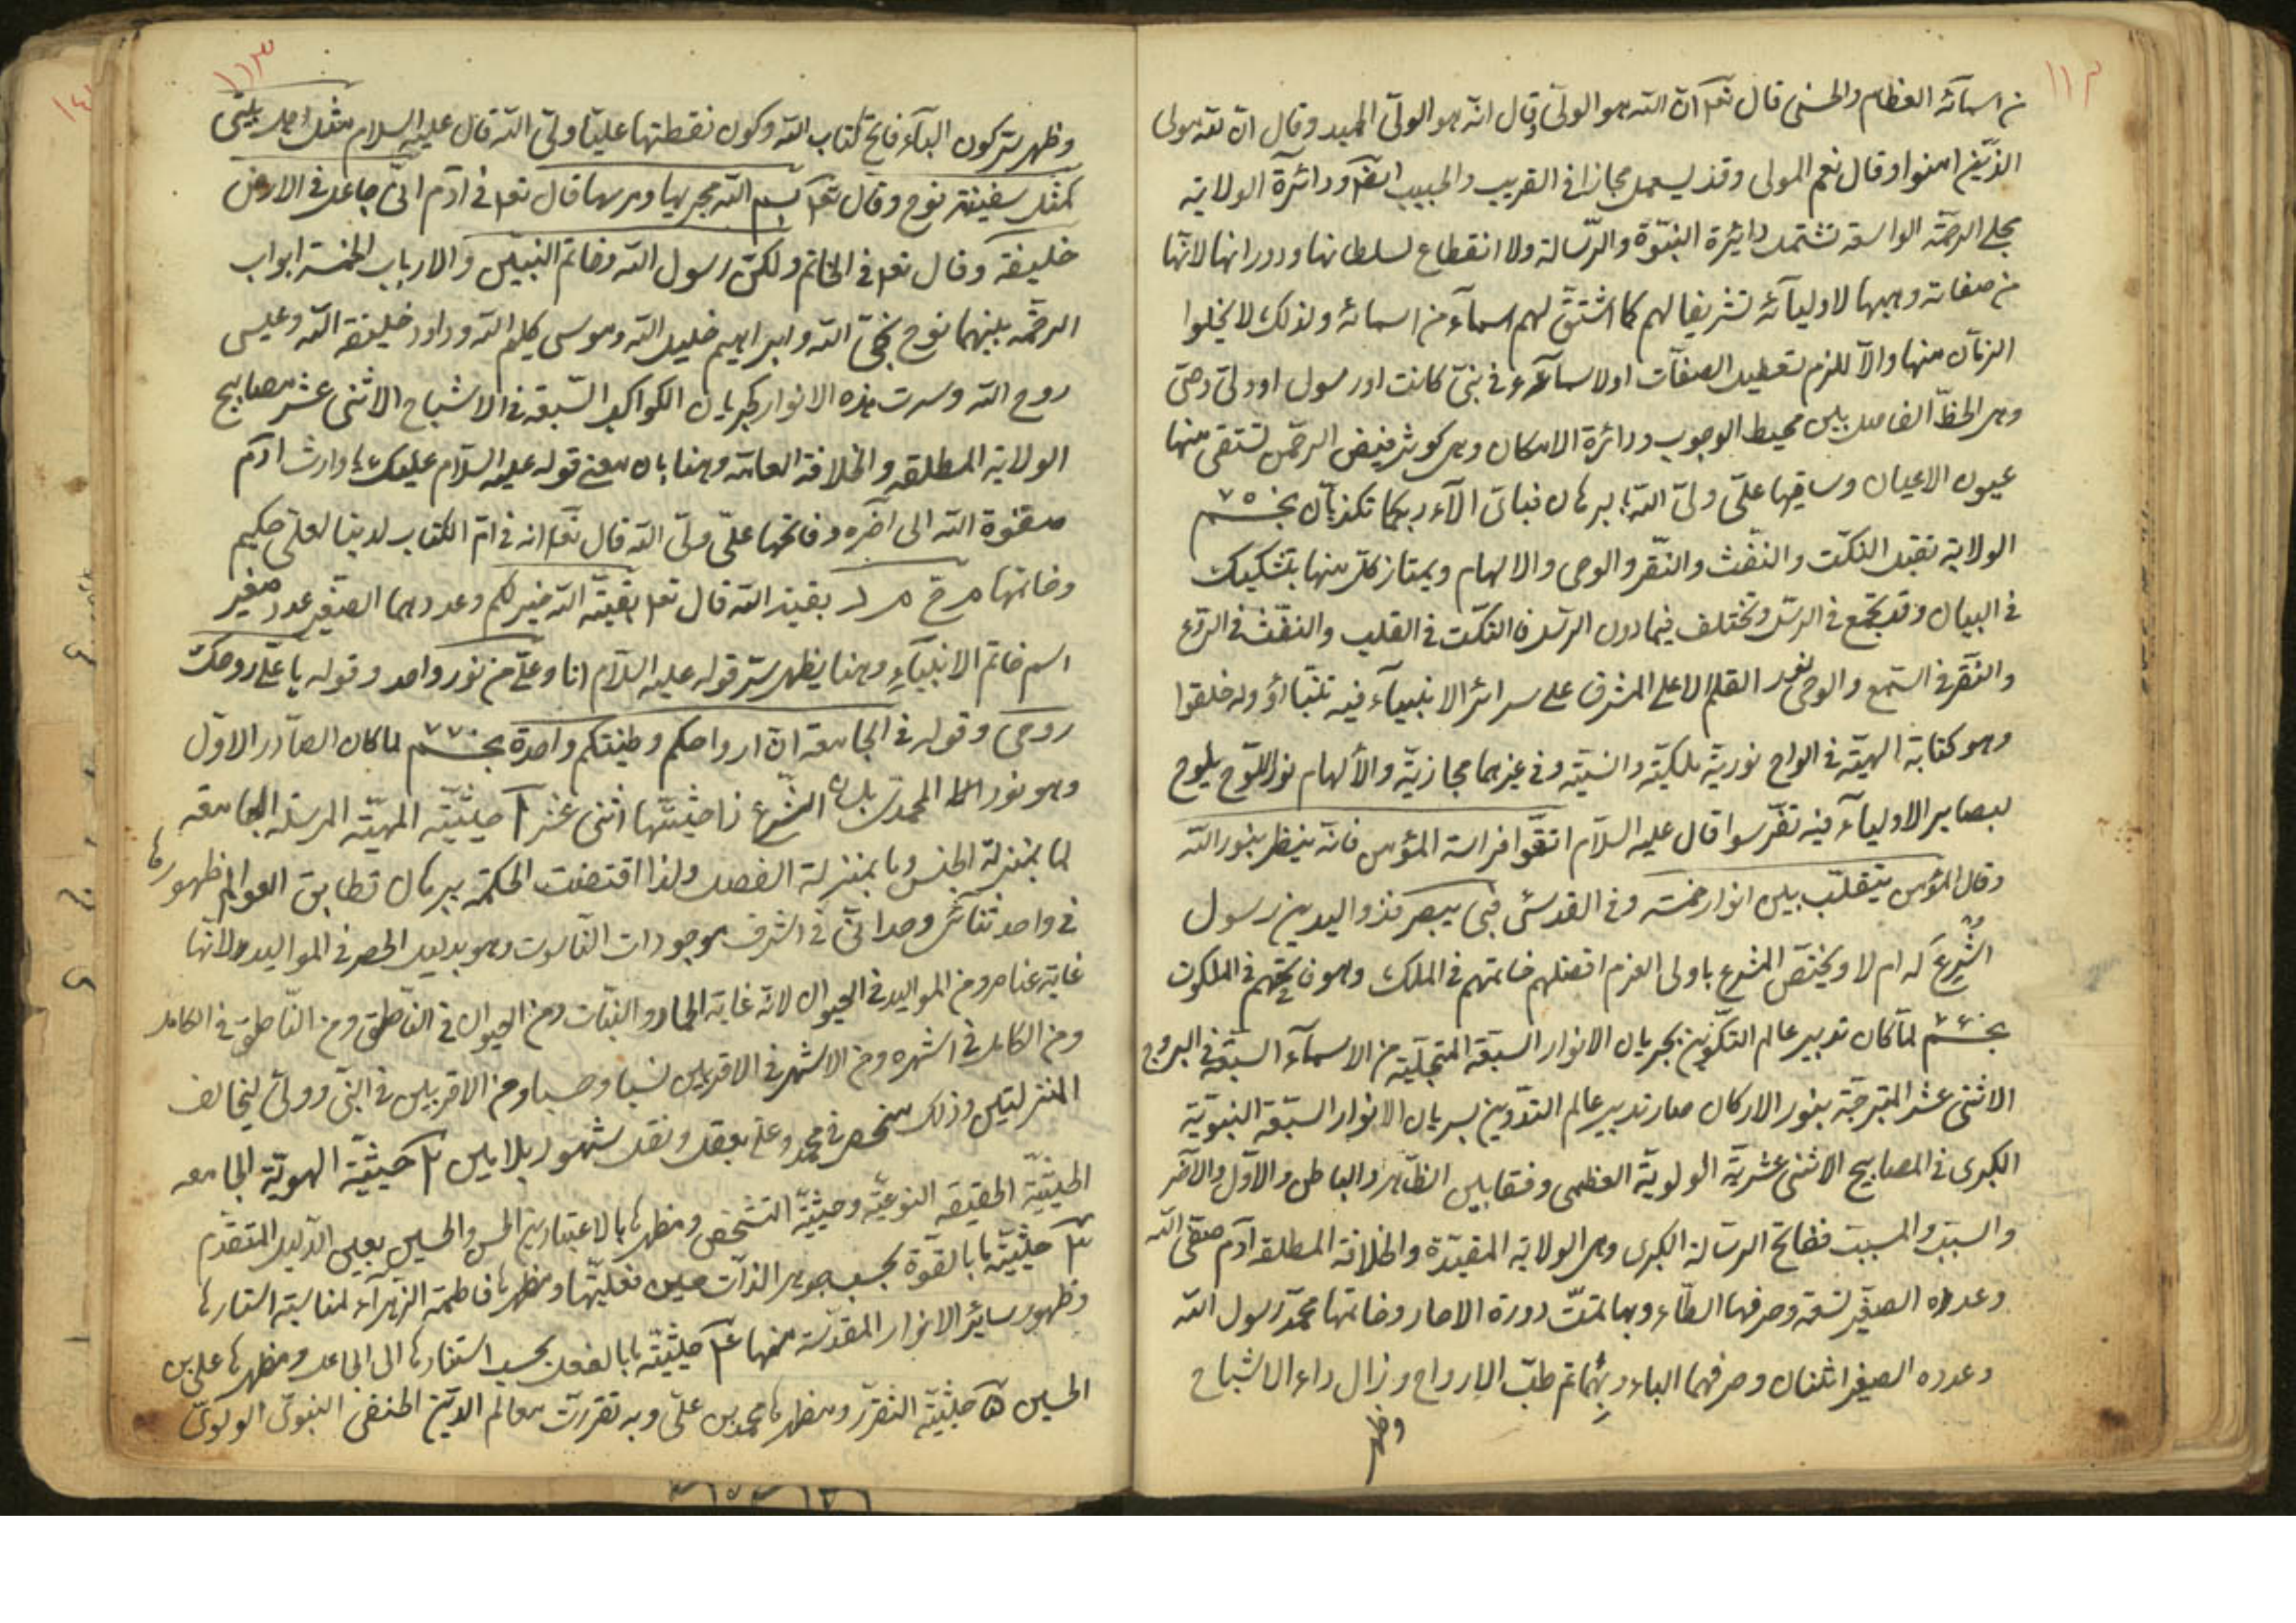 ١١٢
من اسمآئه العظام والحسنى قال تعا انّ الله هو الولىّ وقال انّه هو الولىّ الحميد وقال انّ الله مولى
الذّين امنوا وقال نعم المولى وقد يستعمل مجازا فى القريب والحبيب ايضا ودائرة الولاية
مجلى الرحمة الواسعة تشتمل دائرة النبوّة والرّسالة ولا انقطاع لسلطانها ودورانها لانّها
من صفاته وهبها لاوليآئه تشريفا لهم كما اشتقّ لهم اسمآء من اسمائه ولذلك لا يخلوا
الزمان منها والا للزم تعطيل الصفات اولا سمآئه فى نبىّ كانت اورسول او ولىّ وصىّ
وهى الخطّ الفاصل بين محيط الوجوب ودائرة الامكان وهى كوثر فيض الرحمن تستقى منها
عيون الاعيان وساقيها علىّ ولىّ الله برهان فباىّ الآء ربكما تكذبان نجم ٧٥
الولاية تقبل النكت والنفث والنّقر والوحى والالهام ويمتاز كلّ منها بتشكيك
فى البيان وقد تجتمع فى الرسل وتختلف فيما دون الرسل فالنكت فى القلب والنفث فى الروع
والنّقر فى السّمع والوحى نور القلم الاعلى المشرق على سرائر الانبيآء فيه تنبّاؤ وله خلقوا
وهو كتابة الهيّة فى الواح نوريّة ملكيّة وانسيّة وفى غيرهما مجازيّة والألهام نور اللّوح يلوح
لبصاير الاوليآء فيه تفرّسوا قال عليه السلام اتقوا فراسة المؤمن فانّه ينظر بنور الله
وقال المؤمن يتقلّب بين انوار خمسة وفى القدسىّ فبى يبصر فذو اليدين رسول
اشرع له ام لا ويختصّ المشرع باولى العزم افضلهم خاتمهم فى الملك وهو فاتحهم فى الملكوت
نجم ٧٦ لمّا كان تدبير عالم التكوين بجريان الانوار السبعة المتجلّية من الاسمآء السبعة فى البروج
الاثنى عشر المتبرجة بنور الاركان صار تدبير عالم التدوين بسريان الانوار السبعة النبوّية
الكبرى فى المصابيح الاثنى عشريّة الولويّة العظمى وفتقابلين الظّاهر والباطن والاوّل والآخر
والسبب والمسبب ففاتح الرسالة الكبرى وهى الولاية المقيّدة والخلافة المطلقة آدم صفى الله
وعدده الصغير تسعة وحرفها الطّاء وبها تمّت دورة الاحار وخاتمها محمّد رسول الله
وعدده الصغير اثنان وحرفهما الباء وبهما تم طبّ الارواح وزال داء الاشباح
وظهر
١١٣
وظهر سرّ كون البآء فاتح كتاب الله وكون نقطتها عليّا ولىّ الله قال عليه السلام مثل اهل بيتى
كمثل سفينة نوح وقال تعا بسم الله مجريها ومرسها قال تعا فى ادم انّى جاعل فى الارض
خليفة وقال تعا فى الخاتم ولكن رسول الله وخاتم النبيّين والارباب الخمسة ابواب
الرحمة بينهما نوح نجىّ الله وابراهيم خليل الله وموسى كليم الله وداود خليفة الله وعيسى
روح الله وسرت هذه الانوار كجريان الكواكب السّبعة فى الاشباح الاثنى عشر مصابيح
الولاية المطلقة والخلافة العامّة وهنا بان معنى قوله عليه السلام عليك يا وارث ادم
صفوة الله الى آخره وفاتحها علىّ ولىّ الله قال تعا انه فى امّ الكتاب لدينا لعلىّ حكيم
وخاتمها م ح م د بقية الله قال تعا بقيّة الله خير لكم وعددهما الصغير عدد صغير
اسم خاتم الانبيآء وهنا يظهر سرّ قوله عليه السلام انا وعلىّ من نور واحد وقوله يا علىّ روحك
روحى وقوله فى الجامعة انّ ارواحكم وطينتكم واحدة نجم ٧٧ لما كان الصادر الاوّل
وهو نور المحمدى ذا حيثيّتها اثنى عشر ١ حيثيّة المهيّة المرسلة الجامعة
لما بمنزلة الجنس وما بمنزلة الفصل ولذا اقتضت الحكمة ببرهان تطابق العوالم ظهورها
فى واحد وحدانىّ فى اشرف موجودات الناسوت وهو بدليل الحصر فى المواليد لانّها
غاية عناصر ومن المواليد فى الحيوان لانّه غاية الجماد والنبات ومن الحيوان فى الناطق ومن الناطق فى الكامل
ومن الكامل فى اشهره ومن الاشهر فى الاقربين نسبا وحسبا ومن الاقربين فى النبىّ وولىّ لتخالف
المنزلتين وذلك منحصر فى محمد وعلىّ بعقل ونقل مشهور بلا مين ٢ حيثيّة الهويّة الجامعة
الحيثيّة الحقيقة النوعيّة وحيثيّة التشخص ومظهرها بالاعتبارين الحسن والحسين بعين الدليل المتقدّم
٣ حيثيّتها بالقوّة بحسب جوهر الذات حين فعليّتها ومظهرها فاطمة الزهرآء لمناسبة استنارها
وظهور سائر الانوار المقدّسة منها ٤ حيثيّتها بالفعل بحسب استنادها الى الجاعل ومظهرها على بن
الحسين ٥ حيثيّة التقرّر ومظهرها محمد بن علىّ وبه تقررت معالم الدّين الحنفى النبوىّ الولوىّ